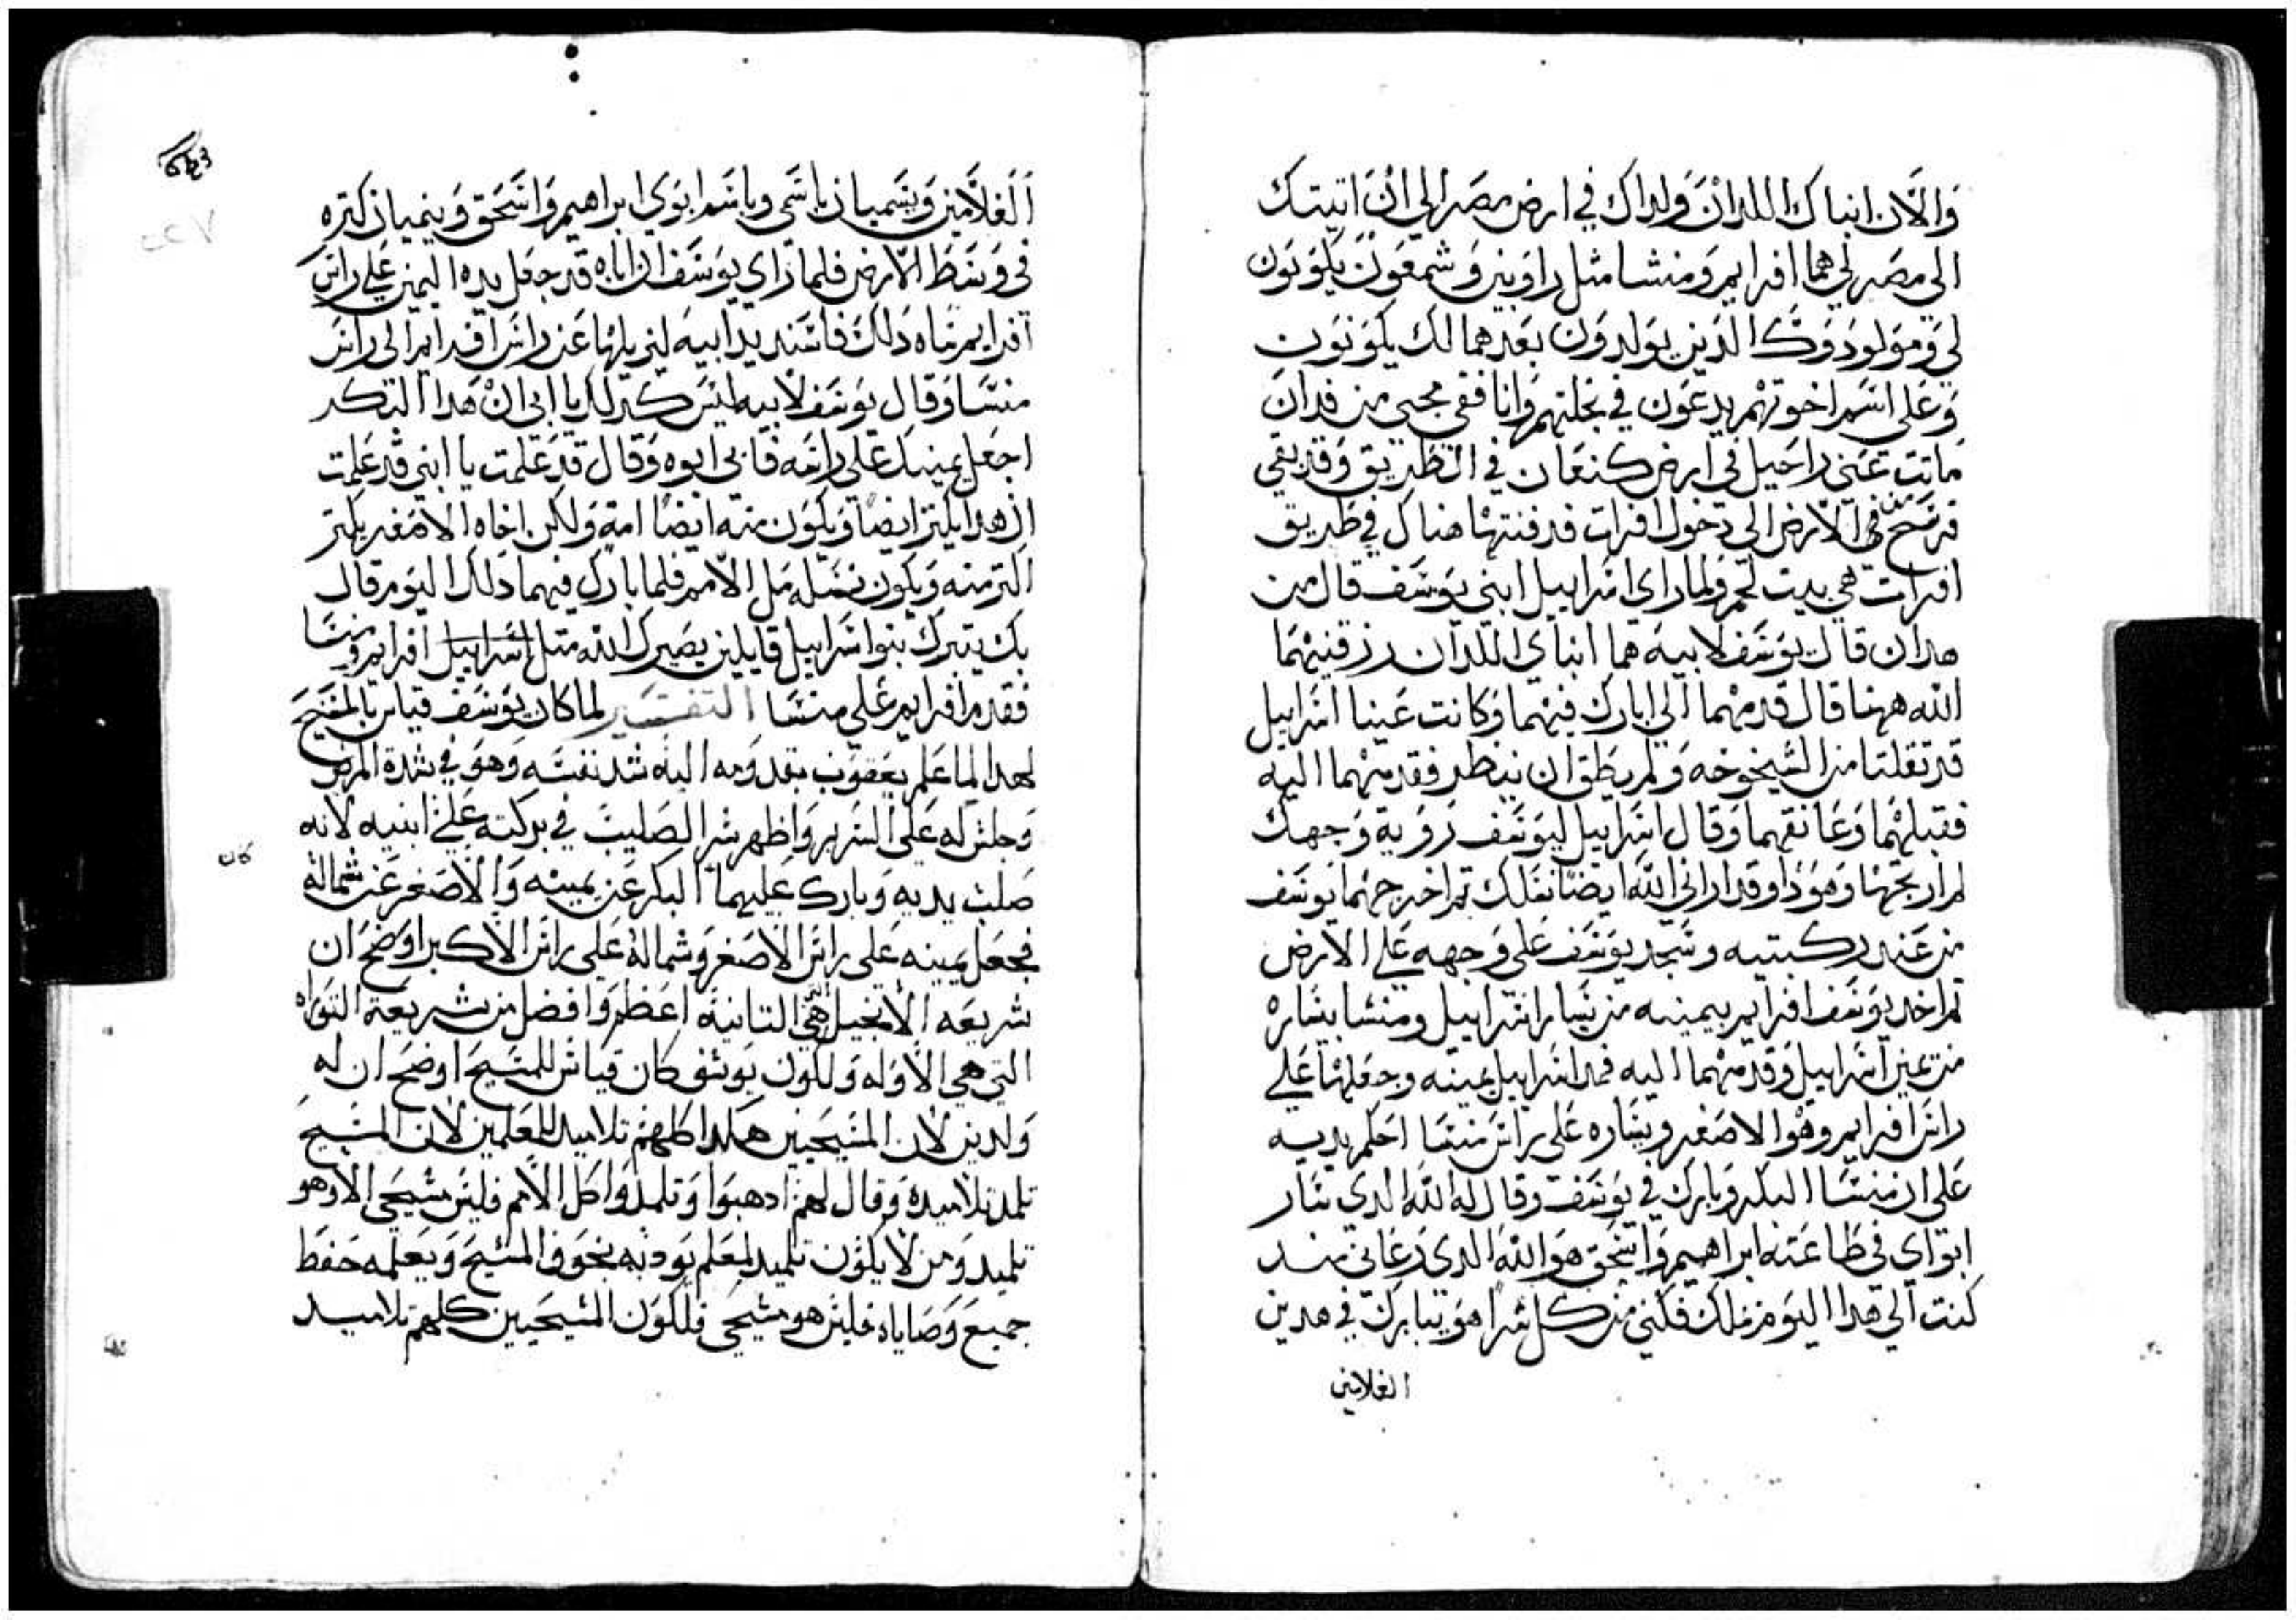 والان ابناك اللدان ولداك في ارض مصر الي ان اتيتك
الي مصر لي هما افرايم ومنشا مثل راوبين وشمعون يكونون
لي ومولودوك الدين يولدون بعدهما لك يكونون
وعلي اسم اخوتهم يدعون في نحلتهم وانا ففي مجيي من فدان
ماتت عني راحيل في ارض كنعان في الطريق وقد بقي
فرسخ من في الارض الي دخول افرات فدفنتها هناك في طريق
افرات هي بيت لحم ولما راي اسراييل ابني يوسف قال من
هدان قال يوسف لابيه هما ابناي اللدان رزقنيهما
الله ههنا قال قدمهما الي ابارك فيهما وكانت عينا اسراييل
قد ثقلتا من الشيخوخه ولم يطق ان ينظر فقدمهما اليه
فقبلهما وعانقهما وقال اسراييل ليوسف رؤية وجهك
لم ارتجها وهودا وقد اراني الله ايضا نسلك تم اخرجهما يوسف
من عند ركبتيه وسجد يوسف علي وجهه علي الارض
تم اخد يوسف افرايم بيمينه من يسار اسراييل ومنشا بيساره
من يمين اسراييل وقدمهما اليه فمد اسراييل يمينه وجعلها علي
راس افرايم وهو الاصغر ويساره علي راس منشا احكم يديه
علي ان منشا البكر وبارك في يوسف وقال له الله الدي سار
ابواي في طاعته ابراهيم واسحق هو الله الدي رعاني مند
كنت الي هدا اليوم ملك فكني من كل شر هو يبارك في هدين
الغلامين
الغلامين ويسميان باسمي وباسم ابوي ابراهيم واسحق وينميان كتره
في وسط الارض فلما راي يوسف ان اباه قد جعل يده اليمين علي راس
افرايم ساه دلك فاسند يد ابيه ليزيلها عن راس افرايم الي راس
منسا وقال يوسف لابيه ليس كدلك يا ابي ان هدا البكر
اجعل يمينك علي راسه فابي ابوه وقال قد علمت يا ابني قد علمت
ان هدا يكتر ايضا ويكون منه ايضا امة ولكن اخاه الاصغر يكتر
اكتر منه ويكون نسله مل الامم فلما بارك فيهما دلك اليوم قال
بك يتبرك بنوا اسراييل قايلين يصيرك الله متل اسراييل افرايم ومنسا
فقدم افرايم علي منسا التفسير لما كان يوسف قياس بالمسيح
لهدا لما علم يعقوب بقدومه اليه شد نفسه وهو في شدة المرض
وجلس له علي السرير واظهر سر الصليب في بركته علي ابنيه لانه
كان
صلب يديه وبارك عليهما البكر عن يمينه والاصغر عن شماله
فجعل يمينه علي راس الاصغر وشماله علي راس الاكبر اوضح ان
شريعه الانجيل التي هي التانية اعظم وافضل من شريعة التوراه
التي هي الاوله ولكون يوسف كان قياس للمسيح اوضح ان له
ولدين لان المسيحيين هكدا كلهم تلاميد للمعلمين لان المسيح
تلمد تلاميده وقال لهم ادهبوا وتلمدوا كل الامم فليس مسيحي الا وهو
تلميد ومن لا يكون تلميد لمعلم يودبه بخوف المسيح ويعلمه حفظ
جميع وصاياه فليس هو مسيحي فلكون المسيحيين كلهم تلاميد